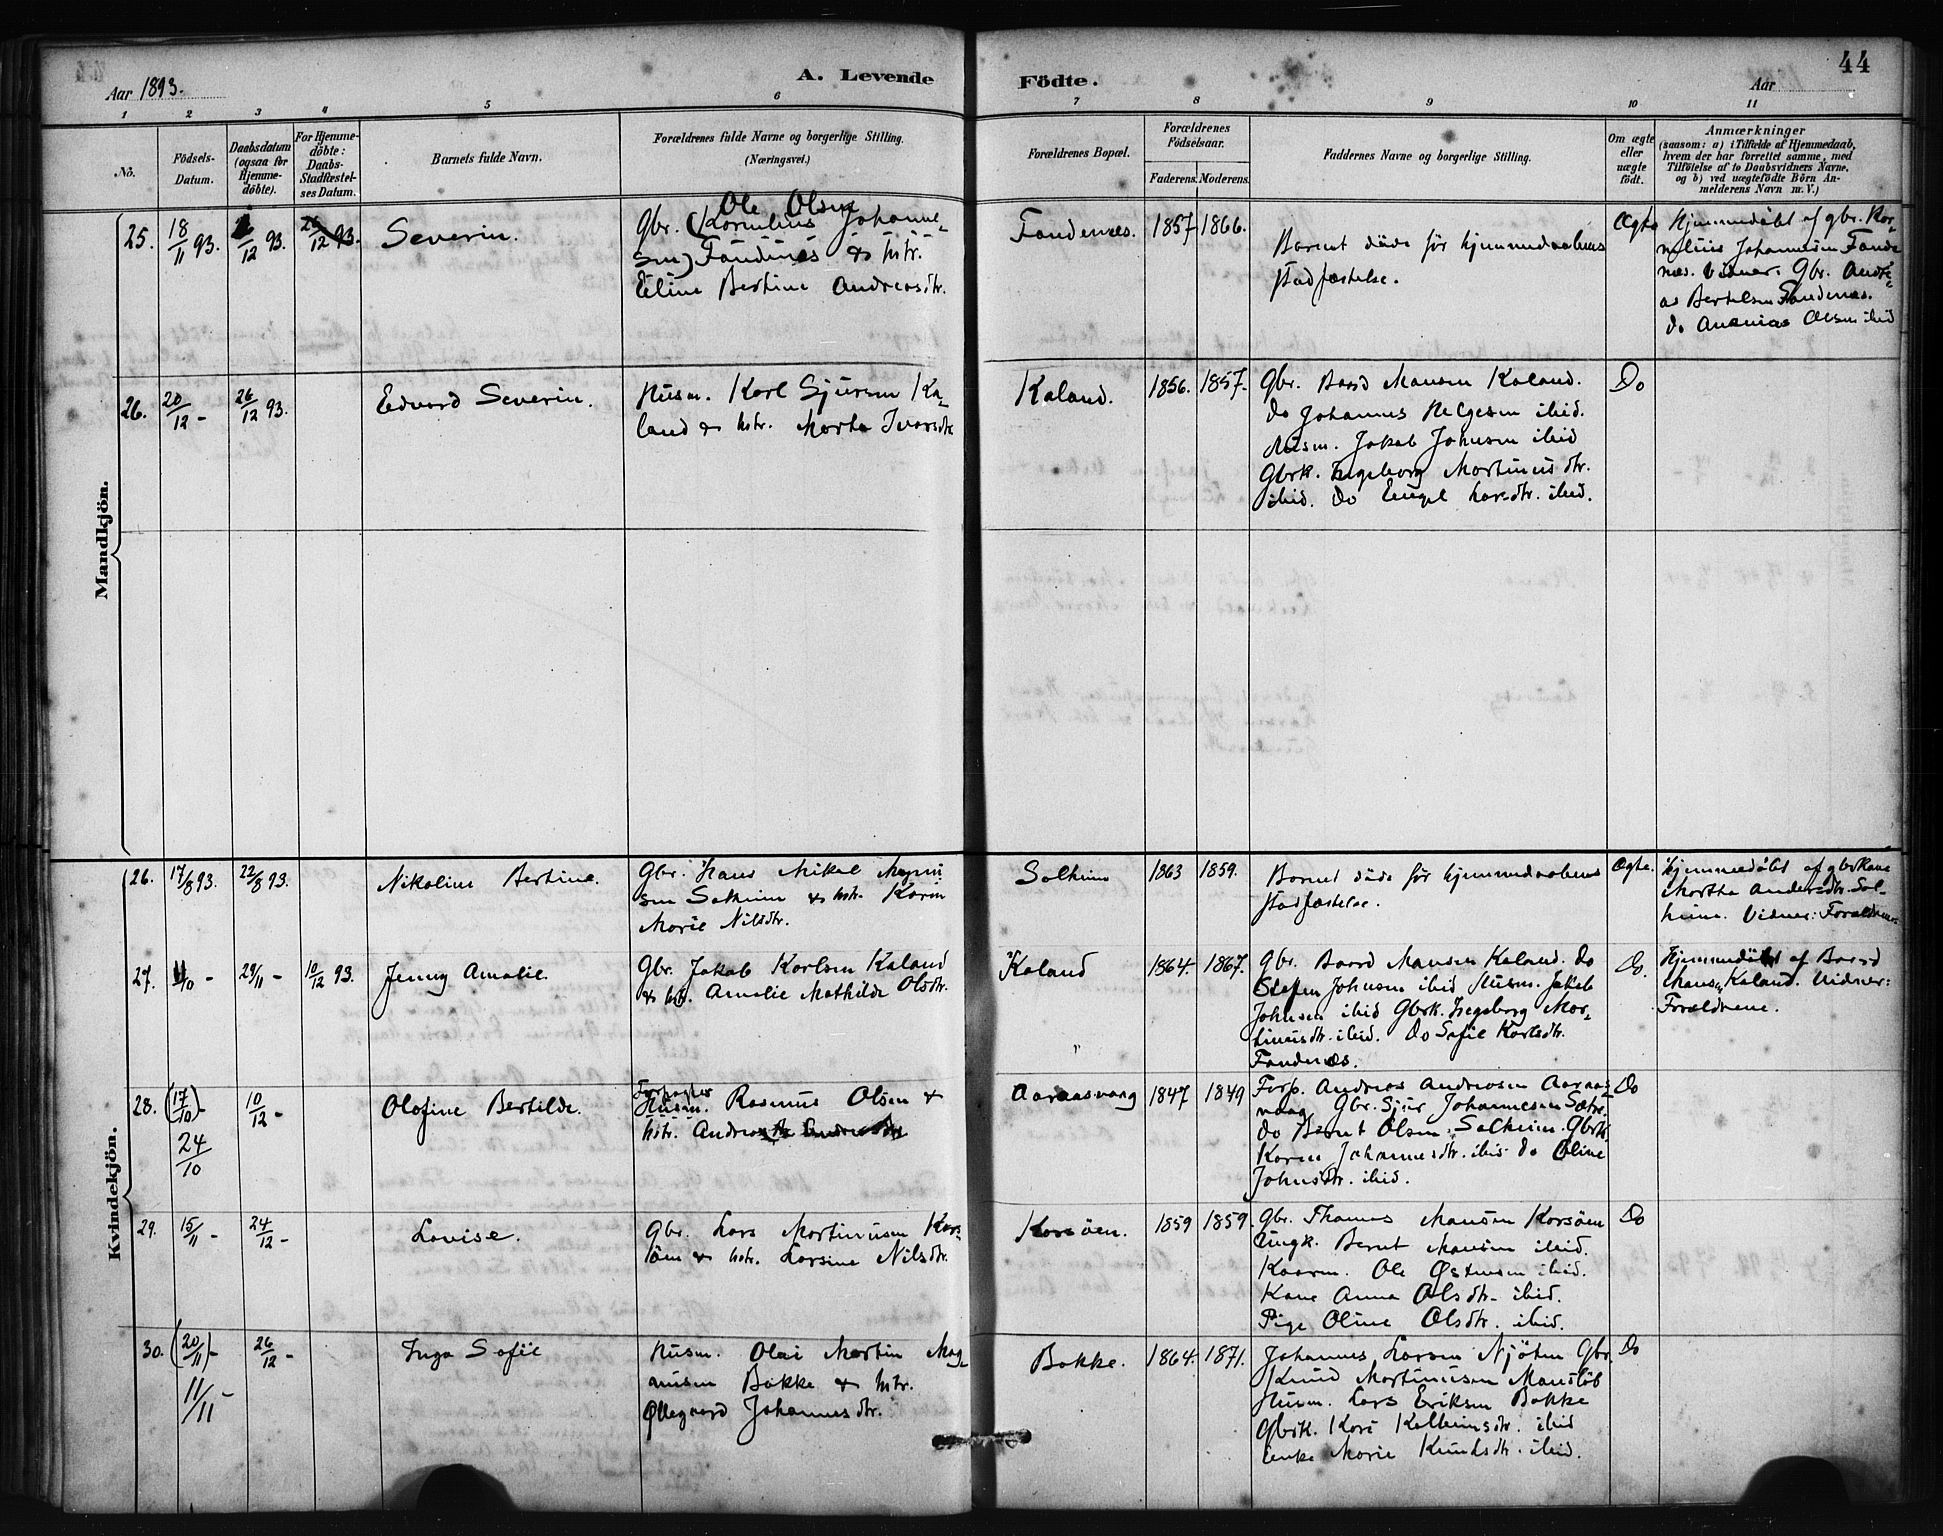 44
A. Levende Födte.
Aar 1893.
Aar
1 2 3 4 5 6 7 8 9 10 11
No.
Födsels-
Datum.
Daabsdatum
(ogsaa for
Hjemme-
döbte).
For Hjemme-
döbte:
Daabs-
Stadfæstel-
ses Datum.
Barnets fulde Navn.
Forældrenes fulde Navne og borgerlige Stilling.
(Næringsvei.)
Forældrenes Bopæl.
Forældrenes
Födselsaar.
Faderens. Moderens.
Faddernes Navne og borgerlige Stilling.
Om ægte
eller
uægte
födt.
Anmærkninger
(saasom: a) i Tilfælde af Hjemmedaab,
hvem der har forrettet samme, med
Tilföielse af to Daabsvidners Navne,
og b) ved uægtefödte Börn An-
melderens Navn m. V.)
Mandkjön.
25. 18/11 93. /12 93. 26/12 93. Severin.
Ole Olsen
Gbr. (Kornelius Johanne-
sen) Fandenæs & hstr.
Eline Bertine Andreasdtr.
Fandenæs. 1857 1866.
Barnet døde før hjemmedaabens
stadfæstelse.
Ægte
Hjemmedøbt af gbr. Kor-
nelius Johannesen Fande
næs. Vidner: Gbr. Andre-
as Bertelsen Fandenæs.
do Ananias Olsen ibid
26. 20/12 - 26/12 93. Edvard Severin.
Husm. Karl Sjursen Ka-
land & hstr. Marta Ivarsdtr
Kaland. 1856. 1857.
Gbr. Baard Mansen Kaland.
do Johannes Helgesen ibid.
Husm. Jakob Johnsen ibid
Gbrk. Ingeborg Martinusdtr.
ibid. do Engel Larsdtr. ibid.
Do
Kvindekjön.
26. 17/8 93. 22/8 93. Nikoline Bertine.
Gbr. Hans Mikal Magnu
sen Solheim & hstr. Karin
Marie Nilsdtr.
Solheim 1863 1859.
Barnet døde før hjemmedaabens
stadfæstelse.
Ægte.
Hjemmedøbt af gbrkone
Martha Andersdtr. Sol-
heim. Vidner: Forældrene.
27. /10 - 29/11 - 10/12 93. Jenny Amalie.
Gbr. Jakob Karlsen Kaland
& hstr. Amalie Mathilde Olsdtr.
Kaland 1864. 1867.
Gbr. Baard Mansen Kaland. do
Stefen Johnsen ibid Husm. Jakob
Johnsen ibid Gbrk. Ingeborg Mar-
tinusdtr. ibid. do Sofie Karlsdtr.
Fandenæs.
Do.
Hjemmedøbt af Baard
Mansen Kaland. Vidner:
Forældrene.
28. (17/10)- 24/10 10/12 - Olofine Bertilde.
Forpagter
Husm. Rasmus Olsen &
hstr. Andrea
Aaraasvaag 1847 1849
Forp. Andreas Andreasen Aaraas
vaag Gbr. Sjur Johannesen Sætre.
do Bernt Olsen Solheim. Gbrk.
Karen Johannesdtr. ibid. do Oline
Johnsdtr. ibid.
Do
29. 15/11 - 24/12 - Lovise.
Gbr. Lars Martinusen Kors-
øen & hstr. Larsine Nilsdtr.
Korsøen. 1859 1859.
Gbr. Thomas Mansen Korsøen
Ungk. Bernt Mansen ibid.
Kaarm. Ole Østensen ibid.
Kone Anna Olsdtr. ibid.
Pige Oline Olsdtr. ibid.
Do
30. (20/11)- 11/11 - 26/12 - Inga Sofie
Husm. Olai Martin Mag-
nusen Bakke & hstr.
Øllegaard Johannesdtr.
Bakke. 1864. 1871.
Johannes Larsen Njøten Gbr.
Knud Martinusen Mansløb
Husm. Lars Eriksen Bakke
Gbrk. Kari ibid
Enke Marie Knudsdtr. ibid.
Do